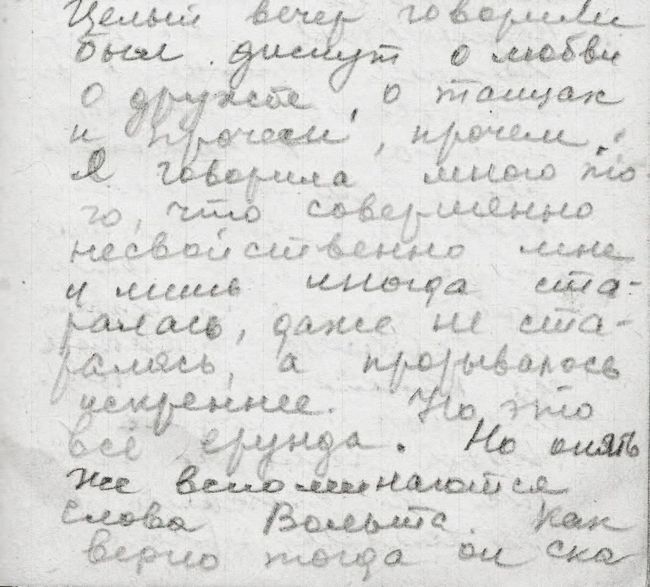 Целый вечер говорили
был диспут о любви
о дружбе, о танцах
и прочем, прочем.
Я говорила много то-
го, что совершенно
несвойственно мне
и лишь иногда ста-
ралась, даже не ста-
ралась, а прорывалось
искреннее. Но это
всё ерунда. Но опять
же вспоминаются
слова Вольта. Как
верно тогда он ска